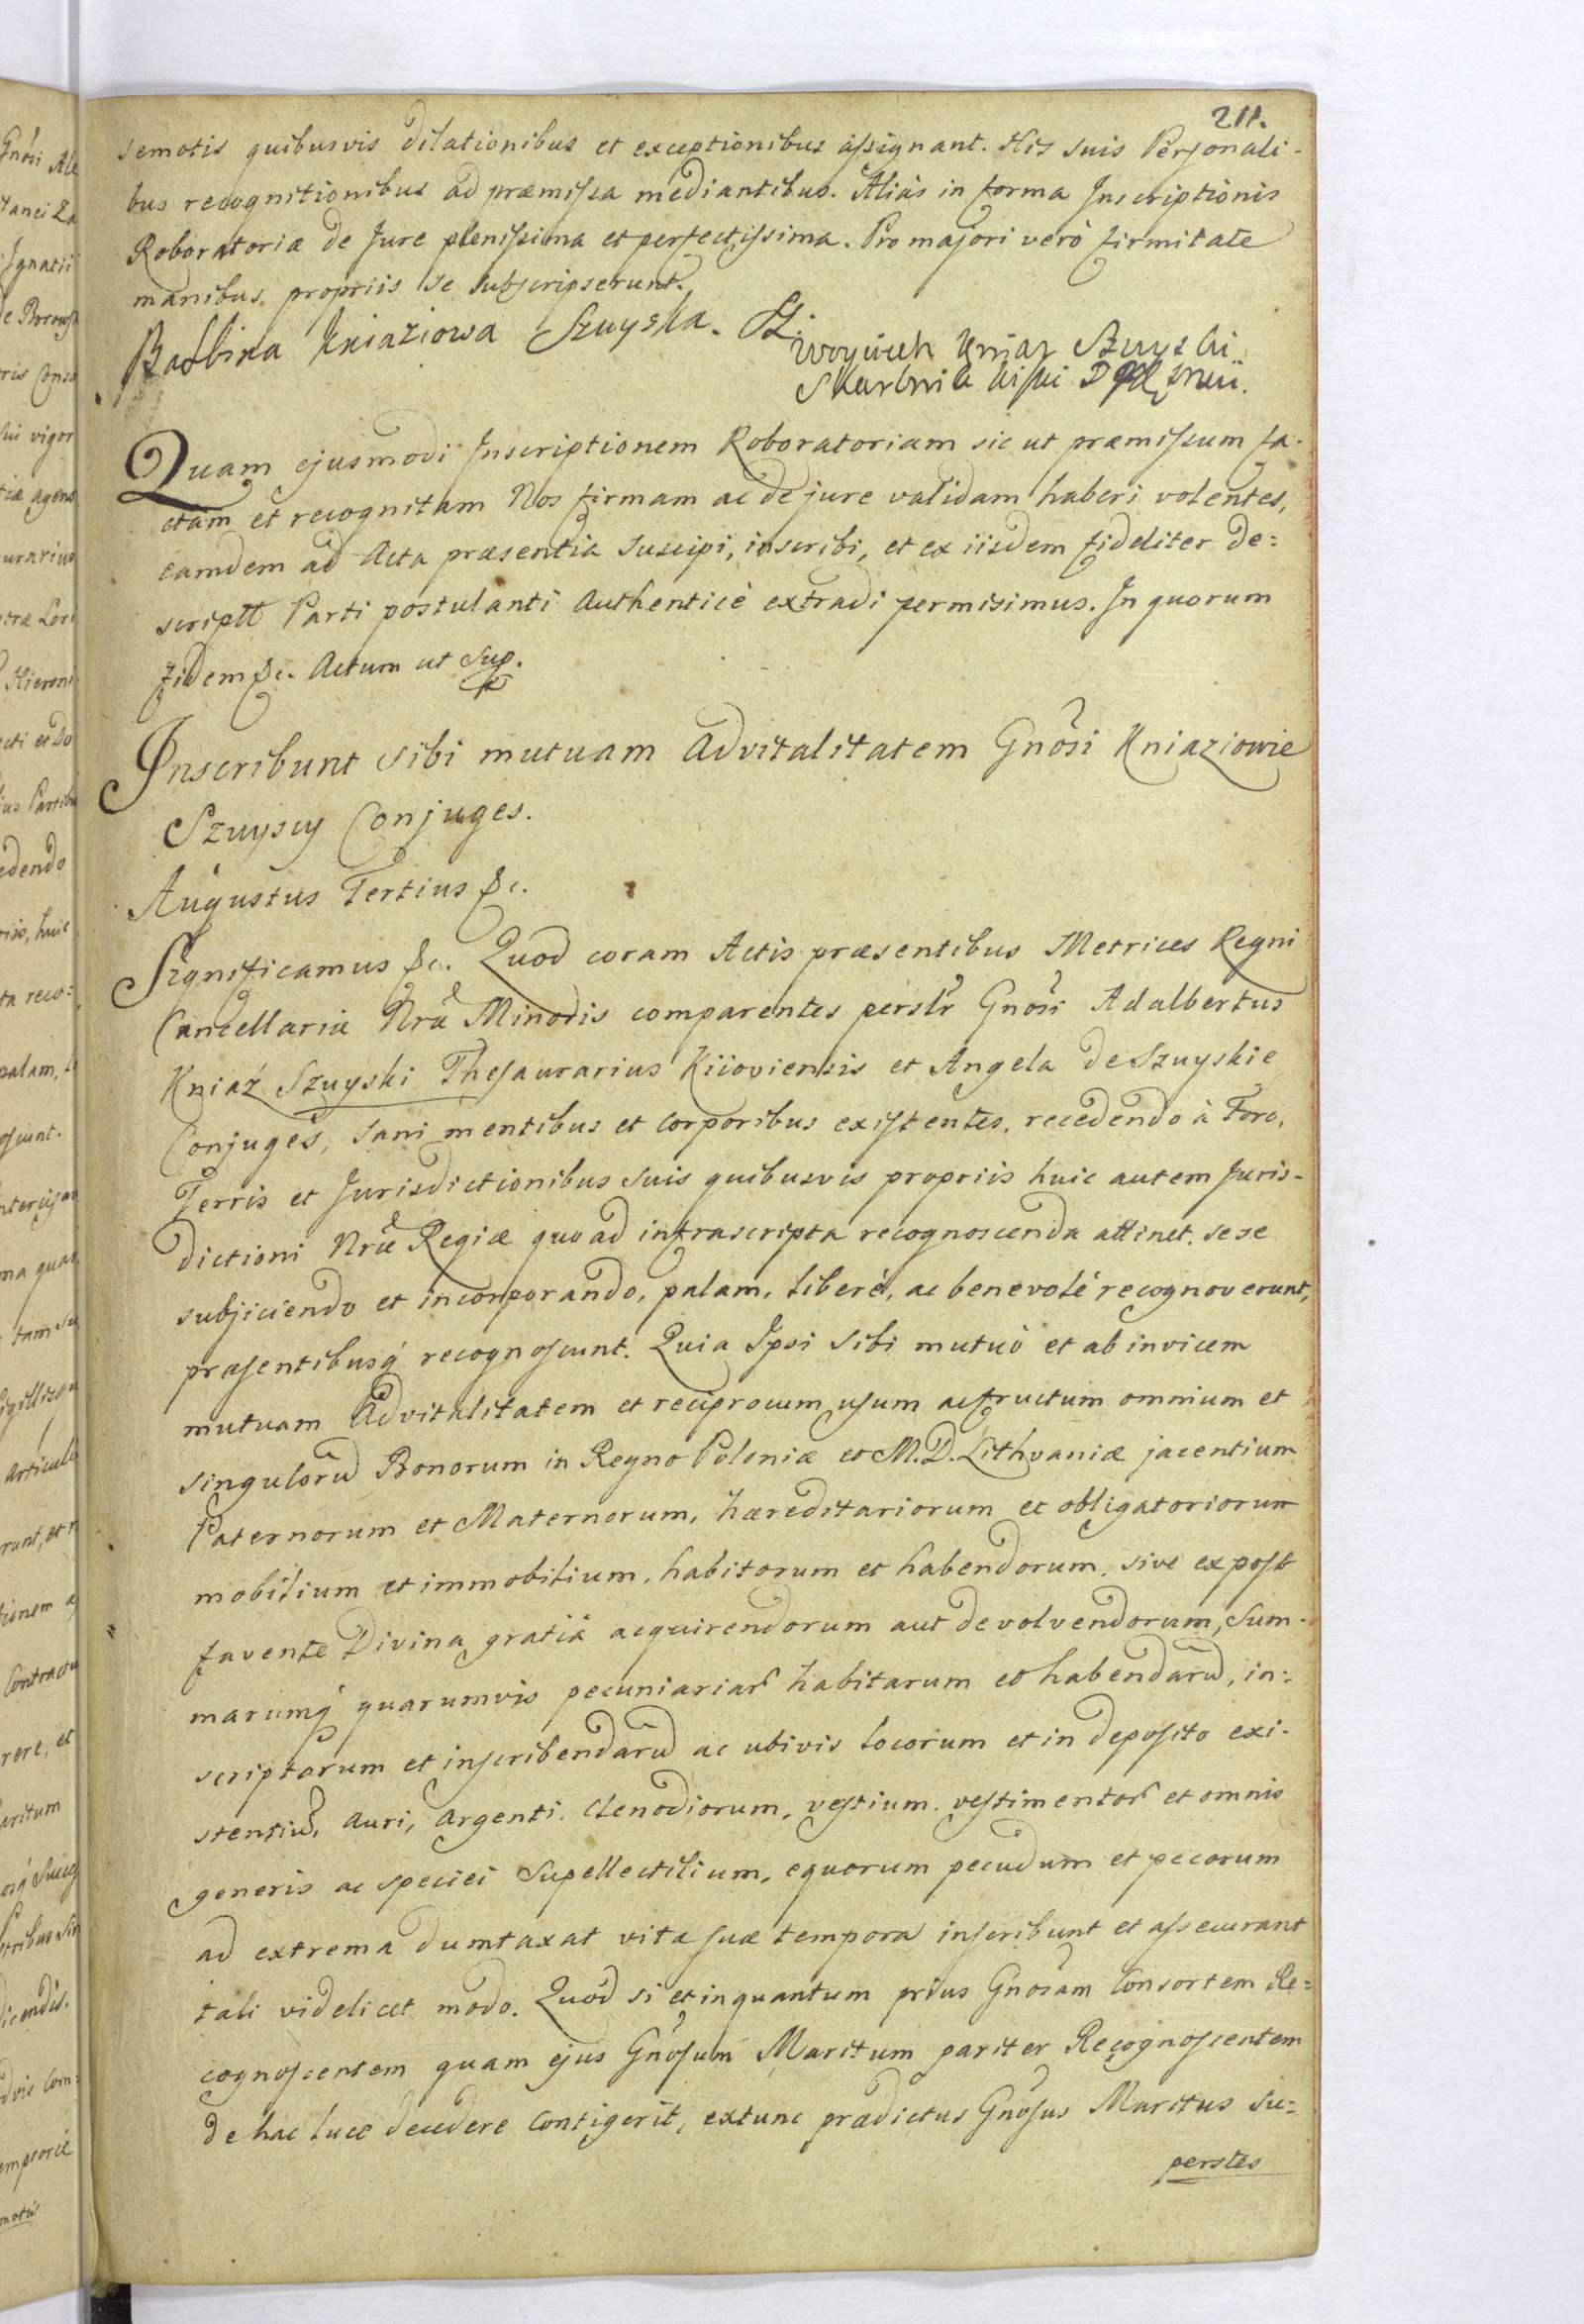 211.
semotis quibusvis dilationibus et exceptionibus assignant. His suis Personali-
bus recognitionibus ad præmissa mediantibus. Aliàs in forma Inscriptionis
Roboratoriæ de Jure plenissima et perfectissima. Pro majori verò firmitate
manibus propriis se subscripserunt.
Balbina Kniaziowa Szuyska.
Woyciech Kniaz Szuyski
Skarbnik
Quam ejusmodi Inscriptionem Roboratoriam sic ut præmissum fa-
ctam et recognitam Nos firmam ac de jure validam haberi volentes,
eamdem ad Acta præsentia suscipi, inscribi, et ex iisdem fideliter de=
scriptt Parti postulanti Authenticè extradi permisimus. In quorum
fidem &c. Actum ut sup.
Inscribunt sibi mutuam Advitalitatem Gnosi Kniaziowie
Szuyscy Conjuges.
Augustus Tertius &c.
Significamus &c. Quod coram Actis præsentibus Metrices Regni
Cancellariæ Nræ Minoris comparentes perslr Gnosi Adalbertus
Kniaź Szuyski Thesaurarius Kiioviensis et Angela de Szuyskie
Conjuges, sani mentibus et corporibus existentes, recedendo à Foro,
Terris et Jurisdictionibus suis quibusvis propriis huic autem Juris-
dictioni Nræ Regiæ quo ad infrascripta recognoscenda attinet, sese
subjiciendo et incorporando, palam, liberè, ac benevolè recognoverunt,
præsentibusq́ recognoscunt. Quia Ipsi sibi mutuò et ab invicem
mutuam Advitalitatem et reciprocum usum ac fructum omnium et
singulorũ Bonorum in Regno Poloniæ et M.D. Lithvaniæ jacentium
Paternorum et Maternorum, hæreditariorum et obligatoriorum
mobilium et immobilium, habitorum et habendorum, sive ex post
favente Divina gratiâ acquirendorum aut devolvendorum, Sum-
marumq́ quarumvis pecuniariar habitarum et habendarũ, in=
scriptarum et inscribendarũ ac ubivis locorum et in deposito exi-
stentiũ, Auri, Argenti, Clenodiorum, vestium, vestimentor et omnis
generis ac speciei Supellectilium, equorum pecudum et pecorum
ad extrema dumtaxat vitæ suæ tempora inscribunt et assecurant
tali videlicet modo. Quòd si et inquantum prius Gnosam Consortem Re=
cognoscentem quam ejus Gnosum Maritum pariter Recognoscentem
de hac luce decedere contigerit, extunc prædictus Gnosus Maritus su=
perstes